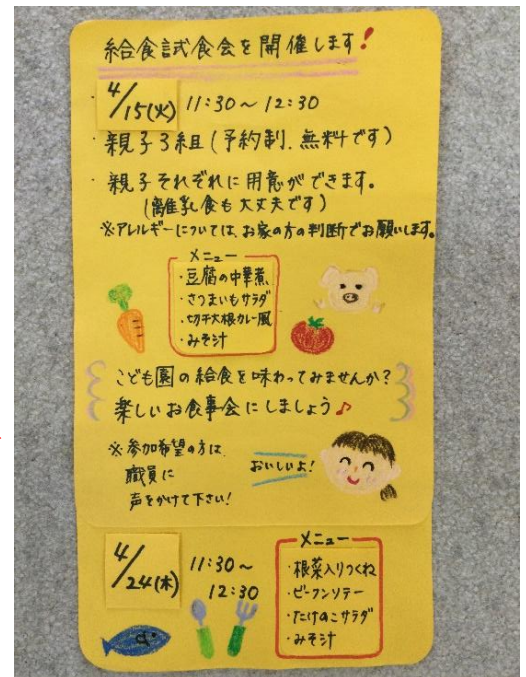 給食試食会を開催します!
・4/15(火) 11:30～12:30
・親子3組(予約制、無料です)
・親子それぞれに用意ができます。
(離乳食も大丈夫です)
※アレルギーについては、お家の方の判断でお願いします。
メニュー
・豆腐の中華煮
・さつまいもサラダ
・切干大根カレー風
・みそ汁
こども園の給食を味わってみませんか?
楽しいお食事会にしましょう♪
※参加希望の方は
職員に
声をかけて下さい!
おいしいよ!
4/24(木) 11:30～
12:30
メニュー
・根菜入りつくね
・ビーフンソテー
・たけのこサラダ
・みそ汁